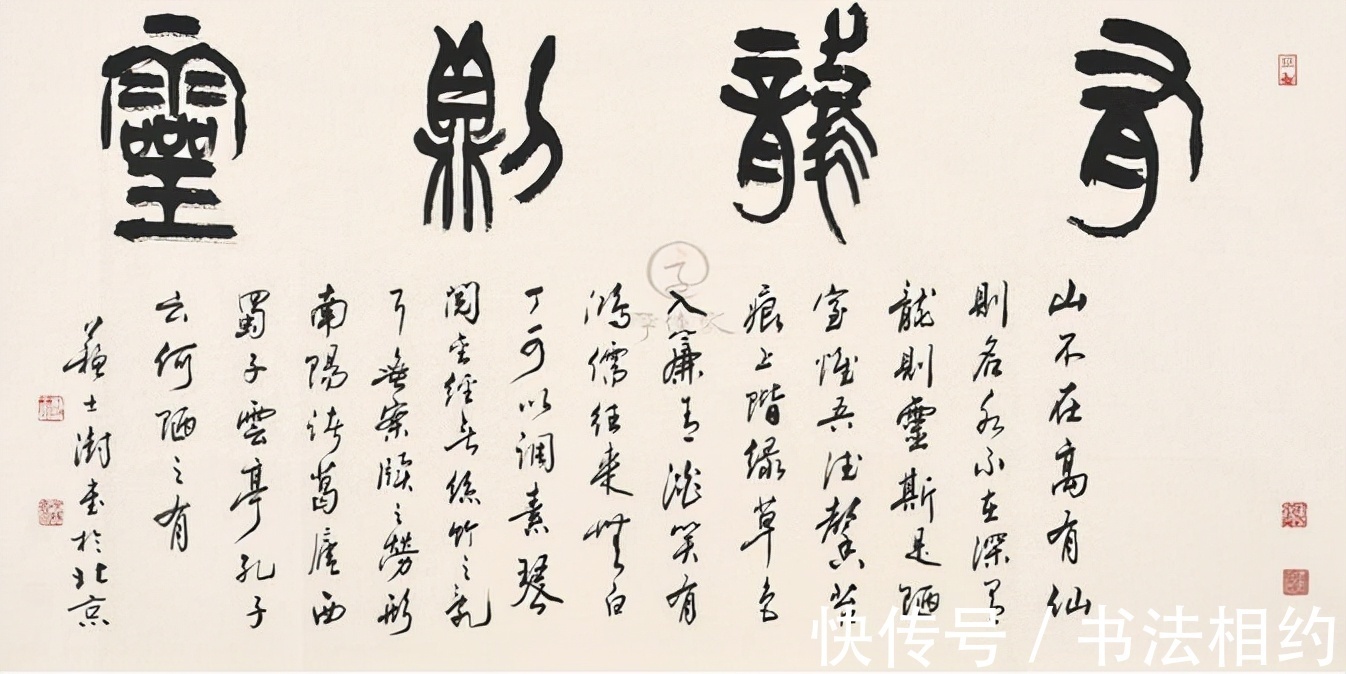 有龍則靈
山不在高有仙
則名水不在深有
龍則靈斯是陋
室惟吾德馨苔
痕上階緑草色
入簾青談笑有
鴻儒往來無白
丁可以調素琴
閲金經無絲竹之亂
耳無案牘之勞形
南陽諸葛廬西
蜀子雲亭孔子
云何陋之有
蘇士澍書於北京
快传号 / 书法相约